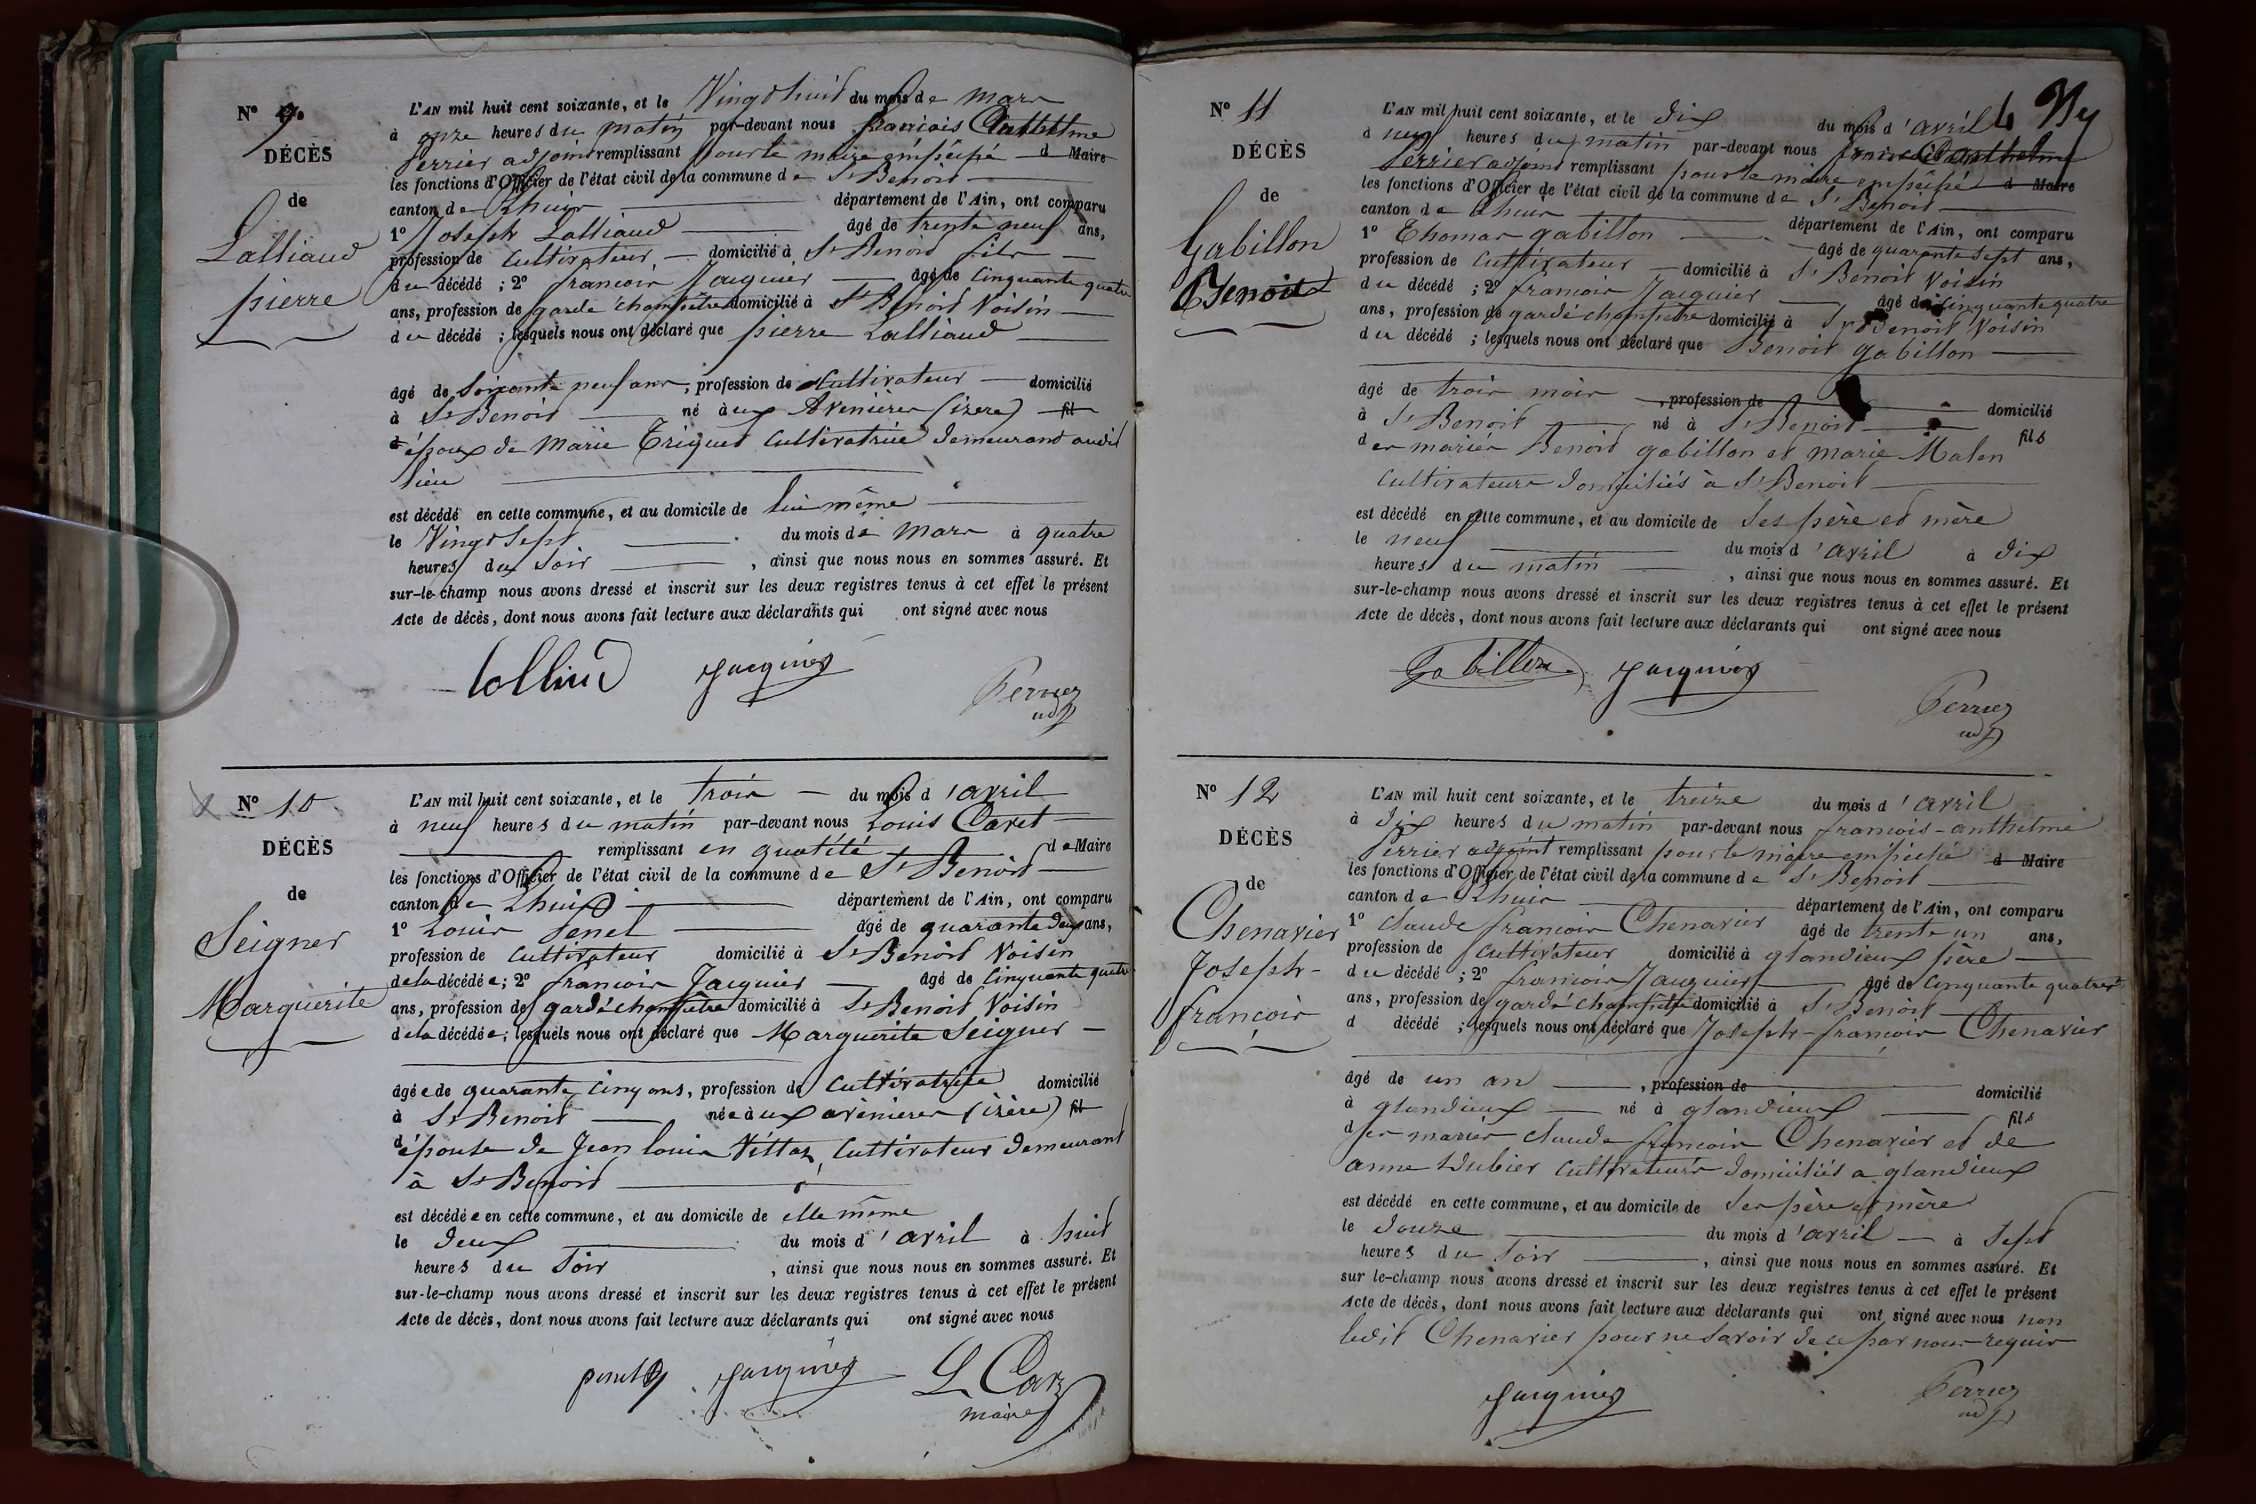 N° 9.
DÉCÈS
de
Lalliaud
pierre
L'AN mil huit cent soixante, et le Vingt huit du mois de mars
à onze heures du matin par-devant nous francois Anthelme
Perrier adjoint remplissant pour le maire empêché d Maire
les fonctions d'Officier de l'état civil de la commune de St Benoit
canton de Lhuis département de l'Ain, ont comparu
1° Joseph Lalliaud âgé de trente neuf ans,
profession de Cultivateur domicilié à St Benoit fils
du décédé ; 2° francois Jacquier âgé de Cinquante quatre
ans, profession de garde champêtre domicilié à St Benoit Voisin
du décédé ; lesquels nous ont déclaré que pierre Lalliaud
âgé de Soixante neuf ans, profession de Cultivateur domicilié
à St Benoit né à ux Avenières (isere) fil
d époux de Marie Triquet Cultivatrice demeurant audit
lieu
est décédé en cette commune, et au domicile de lui même
le Vingt Sept du mois de Mars à quatre
heures du Soir , ainsi que nous nous en sommes assuré. Et
sur-le-champ nous avons dressé et inscrit sur les deux registres tenus à cet effet le présent
Acte de décès, dont nous avons fait lecture aux déclarants qui ont signé avec nous
lolliud Jacquier Perrier
adj
N° 10
DÉCÈS
de
Seigner
Marguerite
L'AN mil huit cent soixante, et le trois du mois d'avril
à neuf heures du matin par-devant nous Louis Caret
remplissant en qualité de Maire
les fonctions d'Officier de l'état civil de la commune de St Benoit
canton de Lhuis département de l'Ain, ont comparu
1° Louis Senel âgé de quarante deux ans,
profession de Cultivateur domicilié à St Benoit Voisin
de la décédée ; 2° francois Jacquier âgé de Cinquante quatre
ans, profession de garde champêtre domicilié à St Benoit Voisin
de la décédée ; lesquels nous ont déclaré que Marguerite Seigner
âgée de quarante cinq ans, profession de Cultivatrice domicilié
à St Benoit née à ux avenieres (isère) fil
d épouse de Jean Louis Vittoz, Cultivateur demeurant
à St Benoit
est décédée en cette commune, et au domicile de elle même
le deux du mois d'avril à huit
heures du Soir , ainsi que nous nous en sommes assuré. Et
sur-le-champ nous avons dressé et inscrit sur les deux registres tenus à cet effet le présent
Acte de décès, dont nous avons fait lecture aux déclarants qui ont signé avec nous
Jacquier L Caret
maire
N° 11
DÉCÈS
de
Gabillon
Benoit
L'AN mil huit cent soixante, et le dix du mois d'avril
à neuf heures du matin par-devant nous francois anthelme
Perrier adjoint remplissant pour le maire empêché d Maire
les fonctions d'Officier de l'état civil de la commune de St Benoit
canton de Lhuis département de l'Ain, ont comparu
1° Thomas gabillon âgé de quarante Sept ans,
profession de Cultivateur domicilié à St Benoit Voisin
du décédé ; 2° francois Jacquier âgé de cinquante quatre
ans, profession de garde champetre domicilié à St Benoit Voisin
du décédé ; lesquels nous ont déclaré que Benoit gabillon
âgé de trois mois , profession de domicilié
à St Benoit né à St Benoit fils
des mariés Benoit gabillon et marie Malen
Cultivateurs domiciliés à St Benoit
est décédé en cette commune, et au domicile de Ses père et mère
le neuf du mois d'avril à dix
heures du matin , ainsi que nous nous en sommes assuré. Et
sur-le-champ nous avons dressé et inscrit sur les deux registres tenus à cet effet le présent
Acte de décès, dont nous avons fait lecture aux déclarants qui ont signé avec nous
Gabillon Jacquier Perrier
adj
N° 12
DÉCÈS
de
Chenavier
Joseph-
francois
L'AN mil huit cent soixante, et le treize du mois d'avril
à dix heures du matin par-devant nous francois-anthelme
Perrier adjoint remplissant pour le maire empêché d Maire
les fonctions d'Officier de l'état civil de la commune de St Benoit
canton de Lhuis département de l'Ain, ont comparu
1° Claude francois Chenavier âgé de trente un ans,
profession de Cultivateur domicilié à glandieux père
du décédé ; 2° francois Jacquier âgé de Cinquante quatre
ans, profession de garde champetre domicilié à St Benoit
d décédé ; lesquels nous ont déclaré que Joseph-francois Chenavier
âgé de un an , profession de domicilié
à glandieux né à glandieux fils
des mariés Claude francois Chenavier et de
anne Dubier Cultivateurs domiciliés a glandieux
est décédé en cette commune, et au domicile de Ses père et mère
le douze du mois d'avril à Sept
heures du Soir , ainsi que nous nous en sommes assuré. Et
sur le-champ nous avons dressé et inscrit sur les deux registres tenus à cet effet le présent
Acte de décès, dont nous avons fait lecture aux déclarants qui ont signé avec nous non
ledit Chenavier pour ne Savoir de ce par nous requis
Jacquier Perrier
adj